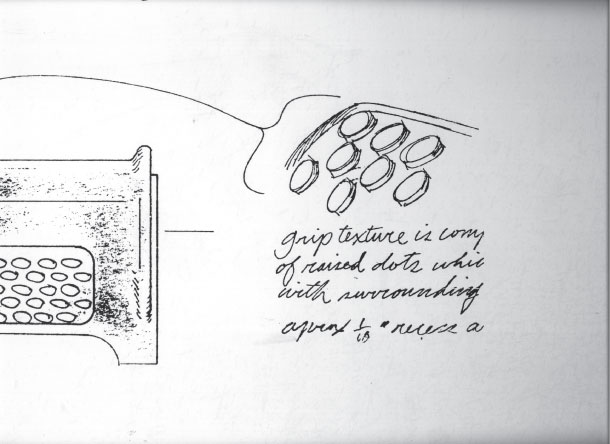 grip texture is com
of raised dots whic
with surrounding
aprox 1/16" recess a